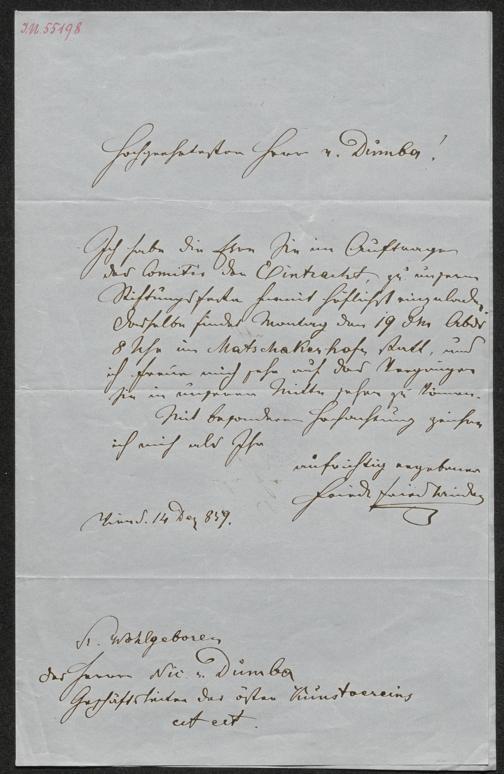 I.N. 55198
Hochgeehrtester Herr v. Dumba!
Ich habe die Ehre Sie im Auftrage
des Comités der Eintracht, zu unserem
Stiftungsfeste hiemit höflichst einzuladen.
Dasselbe findet Montag den 19 dM. Abds
8 Uhr im Matschakerhofe statt, und
ich freue mich sehr auf das Vergnügen
Sie in unserer Mitte sehen zu können.
Mit besonderer Hochachtung zeichne
ich mich als Ihr
aufrichtig ergebener
Wien d. 14 Dez 859.
Sr. Wohlgeboren
des Herrn Nic. v. Dumba
Geschäftsleiter des österr Kunstvereins